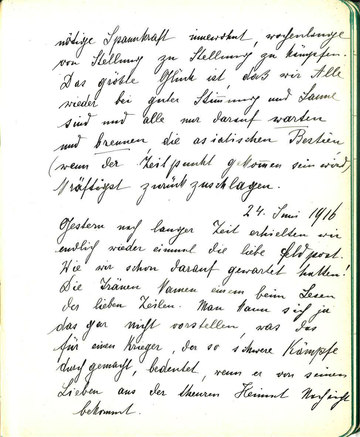 nötige Spannkraft innewohnt, wochenlange
von Stellung zu Stellung zu kämpfen.
Das größte Glück ist, daß wir Alle
wieder bei guter Stimmung und Laune
sind und alle nur darauf warten
und brennen die asiatischen Bestien
(wenn der Zeitpunkt gekommen sein wird)
kräftigst zurückzuschlagen.
24. Juni 1916
Gestern nach langer Zeit erhielten wir
endlich wieder einmal die liebe Feldpost.
Wie wir schon darauf gewartet hatten!
Die Tränen kamen einem beim Lesen
der lieben Zeilen. Man kann sich ja
das gar nicht vorstellen, was das
für einen Krieger, der so schwere Kämpfe
durchgemacht, bedeutet, wenn er von seinen
Lieben aus der theuren Heimat Nachricht
bekommt.